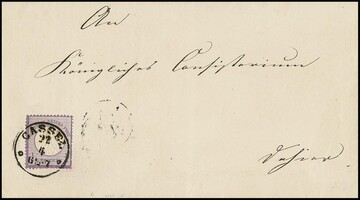 An
Königliches Consistorium
CASSEL
22
4
Dahier